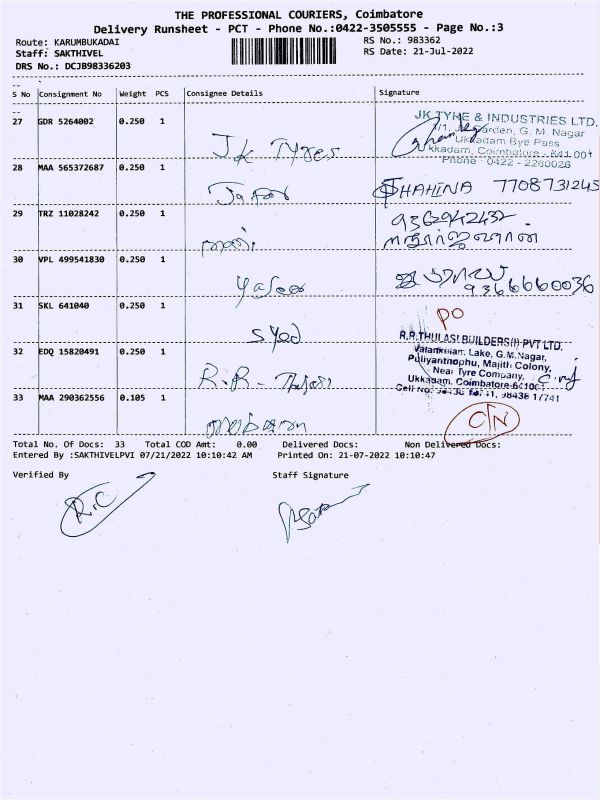 THE PROFESSIONAL COURIERS, Coimbatore
Delivery Runsheet - PCT - Phone No.:0422-3505555 - Page No.:3
Route: KARUMBUKADAI RS No.: 983362
Staff: SAKTHIVEL RS Date: 21-Jul-2022
DRS No.: DCJB98336203
S No Consignment No Weight PCS Consignee Details Signature
27 GDR 5264002 0.250 1 JK Tyres
JK TYRE & INDUSTRIES LTD.
G. M. Nagar
Ukkadam Bye Pass
Ukkadam, Coimbatore - 641 001
Phone : 0422 - 2260026
28 MAA 565372687 0.250 1 SHAHINA 7708731245
29 TRZ 11028242 0.250 1 9362942432
30 VPL 499541830 0.250 1 9366660036
31 SKL 641040 0.250 1 Syed PO
R.R.THULASI BUILDERS(I) PVT LTD.
Valankulam Lake, G.M.Nagar,
Puliyanthophu, Majith Colony,
Near Tyre Company,
Ukkadam, Coimbatore-641001
32 EDQ 15820491 0.250 1 R.R - Thulasi
98438 17741
33 MAA 290362556 0.105 1 C/N
Total No. Of Docs: 33 Total COD Amt: 0.00 Delivered Docs: Non Delivered Docs:
Entered By :SAKTHIVELPVI 07/21/2022 10:10:42 AM Printed On: 21-07-2022 10:10:47
Verified By Staff Signature
R.C